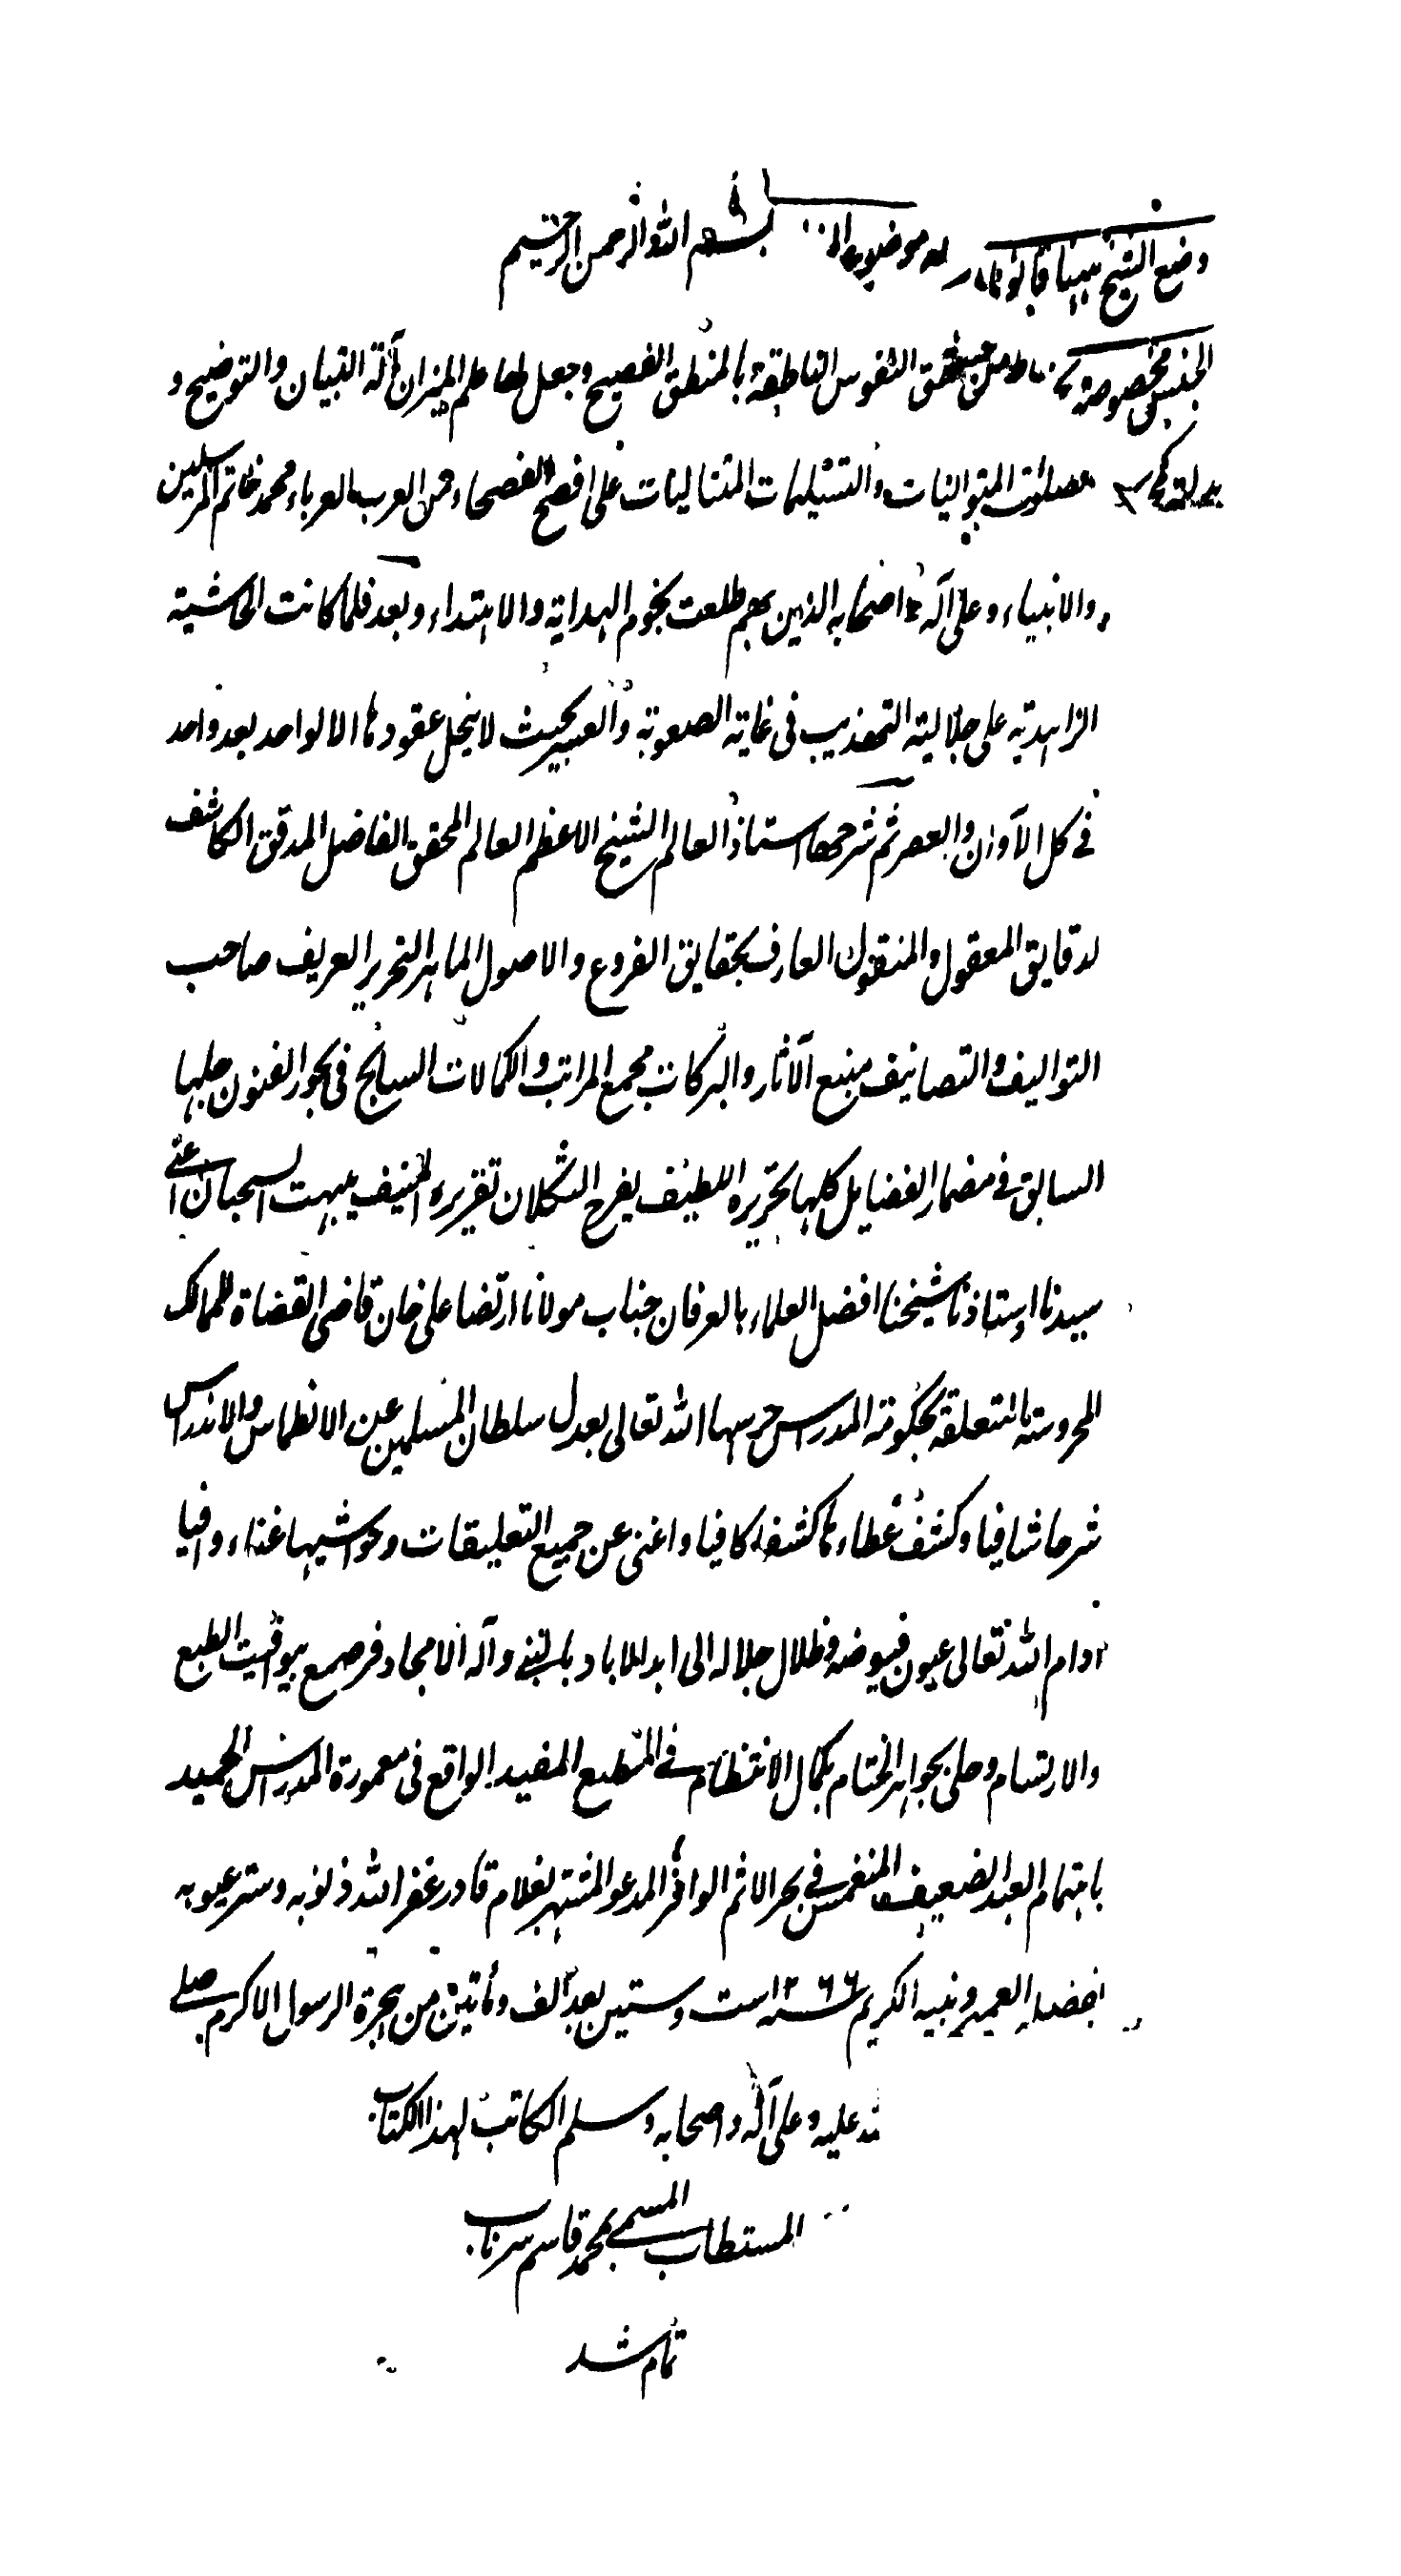 بسم الله الرحمن الرحيم
وضع الشيخ
النفوس الناطقة بالمنطق الفصيح وجعل لها علم الميزان آلة التبيان والتوضيح و
المتواليات والتسليمات المتتاليات على افصح الفصحاء من العرب العرباء محمد خاتم المرسلين
والانبياء وعلى آله واصحابه الذين بهم طلعت نجوم الهداية والاهتداء وبعد فلما كانت الحاشية
الزاهدية على جلالية التهذيب فى غاية الصعوبة والعسر بحيث لا ينحل عقودها الا لواحد بعد واحد
فى كل الآوان والعصر ثم شرحها استاذ العالم الشيخ الاعظم العالم المحقق الفاضل المدقق الكاشف
لدقايق المعقول والمنقول العارف بحقايق الفروع والاصول الماهر النحرير العريف صاحب
التواليف والتصانيف منبع الآثار والبركات مجمع المراتب والكمالات السابح فى بحور الفنون جلها
السابق فى مضمار الفضايل كلها تحريره اللطيف يفرح الثكلان تقريره المنيف يبهت السحبان اعنى
سيدنا استاذنا شيخنا افضل العلماء بالعرفان جناب مولانا ارتضا على خان قاضى القضاة للممالك
المحروسة المتعلقة بحكومة المدراس حرسها الله تعالى بعدل سلطان المسلمين عن الانطماس والاندراس
شرحا شافيا وكشف غطاءها كشفا كافيا واغنى عن جميع التعليقات وحواشيها غناء وافيا
ادام الله تعالى عيون فيوضه وظلال جلاله الى ابد الاباد بالنبى وآله الامجاد فرصع بيواقيت الطبع
والارتسام وحلى بجواهر الختام بكمال الانتظام فى المطبع المفيد الواقع فى معمورة المدراس الحميد
باهتمام العبد الضعيف المنغمس فى بحر الاثم الوافر المدعو المشتهر بغلام قادر غفر الله ذنوبه وستر عيوبه
بفضله العميم ونبيه الكريم سنه ١٢٦٦ ست وستين بعد الف ومأتين من هجرة الرسول الاكرم صلى
الله عليه وعلى آله واصحابه وسلم الكاتب لهذا الكتاب
المستطاب المسمى بمحمد قاسم
تمام شد